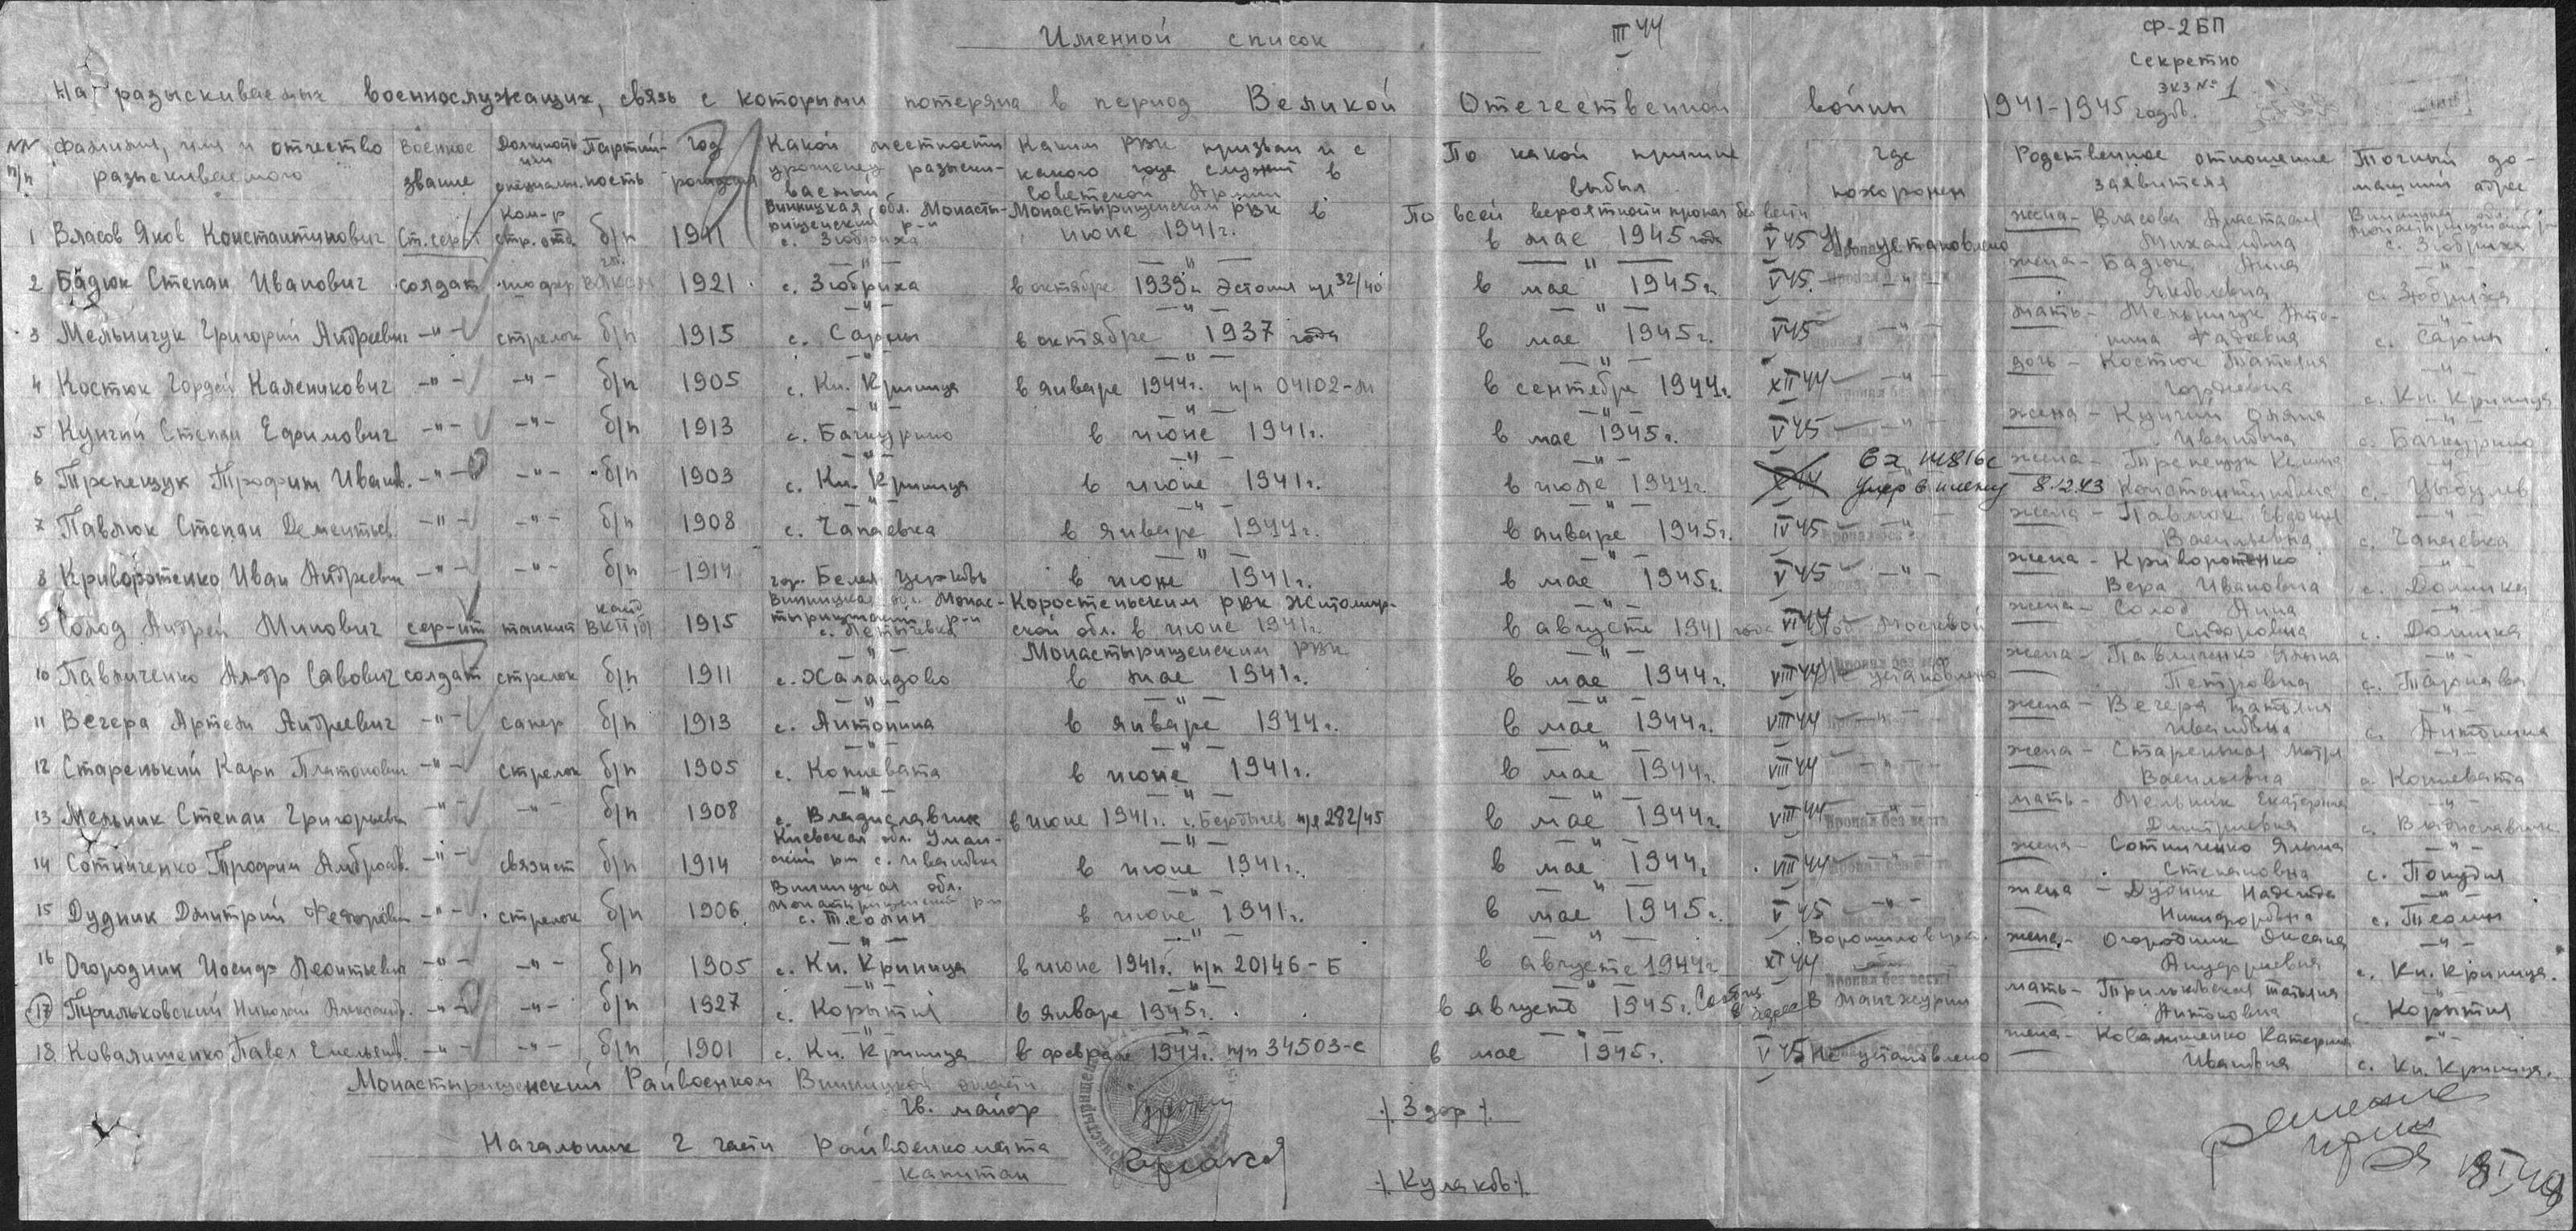 Именной список
III 44
Ф-2БП
Секретно
экз № 1
На разыскиваемых военнослужащих, связь с которыми потеряна в период Великой Отечественной войны 1941-1945 годов.
NN п/п Фамилия, имя и отчество разыскиваемого Военное звание Должность или специальн. Партийность Год рождения Какой местности уроженец разыскиваемый Каким РВК призван и с какого года служит в Советской Армии По какой причине выбыл где похоронен Родственное отношение заявителя Точный домашний адрес
1 Власов Яков Константинович Ст. серж ком-р стр. отд. б/п 1911 Винницкая обл. Монастырищенский р-н с. Зюбриха Монастырищенским РВК в июне 1941г. По всей вероятности пропал без вести в мае 1945 года V 45 Не установлено жена - Власова Анастасия Михайловна Винницкая обл. Монастырищенский р-н с. Зюбриха
2 Бадюк Степан Иванович солдат шофер ВЛКСМ 1921 -"- с. Зюбриха -"- в октябре 1939г. Эстония п/я 32/40 -"- в мае 1945г. V 45 -"- жена - Бадюк Анна Яковлевна -"- с. Зюбриха
3 Мельничук Григорий Андреевич -"- стрелок б/п 1915 -"- с. Сарны -"- в октябре 1937 года -"- в мае 1945г. V 45 -"- мать - Мельничук -"- с. Сарны
4 Костюк Гордей Каленикович -"- -"- б/п 1905 -"- с. Кн. Криница -"- в январе 1944г. п/п 04102-М -"- в сентябре 1944г. XII 44 -"- дочь - Костюк Татьяна Гордеевна -"- с. Кн. Криница
5 Кунгий Степан Ефимович -"- -"- б/п 1913 -"- с. Бачкурино -"- в июне 1941г. -"- в мае 1945г. V 45 -"- жена - Кунгий Ивановна -"- с. Бачкурино
6 Трепещук Трофим Иванов. -"- -"- б/п 1903 -"- с. Кн. Криница -"- в июне 1941г. -"- в июле 1944г. Умер в плену 8.12.43 жена - Трепещук Константиновна -"- с. Цыбулев
7 Павлюк Степан Дементьев. -"- -"- б/п 1908 -"- с. Чапаевка -"- в январе 1944г. -"- в январе 1945г. IV 45 -"- жена - Павлюк Евдокия Васильевна -"- с. Чапаевка
8 Криворотенко Иван Андреевич -"- -"- б/п 1914 гор. Белая Церковь -"- в июне 1941г. -"- в мае 1945г. V 45 -"- жена - Криворотенко Вера Ивановна -"- с. Долинка
9 Солод Андрей Минович сер-нт танкист канд ВКП(б) 1915 Винницкая обл. Монастырищенский р-н с. Летичевка Коростеньским РВК Житомирской обл. в июне 1941г. -"- в августе 1941 года VI 44 Под Москвой жена - Солод Анна Сидоровна -"- с. Долинка
10 Павличенко Ал-др Савович солдат стрелок б/п 1911 -"- с. Халаидово Монастырищенским РВК в мае 1941г. -"- в мае 1944г. VIII 44 Не установлено жена - Павличенко Петровна -"- с. Тарнава
11 Вечера Артем Андреевич -"- сапер б/п 1913 -"- с. Антонина -"- в январе 1944г. -"- в мае 1944г. VIII 44 -"- жена - Вечера Наталия Ивановна -"- с. Антонина
12 Старенький Карп Платонович -"- стрелок б/п 1905 -"- с. Копиевата -"- в июне 1941г. -"- в мае 1944г. VIII 44 -"- жена - Старенькая Мотря Васильевна -"- с. Копиевата
13 Мельник Степан Григорьевич -"- -"- б/п 1908 -"- с. Владиславчик -"- в июне 1941г. г. Бердичев п/я 282/45 -"- в мае 1944г. VIII 44 -"- мать - Мельник Екатерина Дмитриевна -"- с. Владиславчик
14 Сотниченко Трофим Амбросов. -"- связист б/п 1914 Киевская обл. Уманский р-н с. Ивановка -"- в июне 1941г. -"- в мае 1944г. VIII 44 -"- жена - Сотниченко Ульяна Степановна -"- с. Попудня
15 Дудник Дмитрий Федорович -"- стрелок б/п 1906 Винницкая обл. Монастырищенский р-н с. Теолин -"- в июне 1941г. -"- в мае 1945г. V 45 -"- жена - Дудник Надежда Никифоровна -"- с. Теолин
16 Огородник Иосиф Леонтьевич -"- -"- б/п 1905 -"- с. Кн. Криница -"- в июне 1941г. п/п 20146-Б -"- в августе 1944г. XI 44 Ворошиловгр. обл. жена - Огородник Оксана Ануфриевна -"- с. Кн. Криница.
17 Трильковский Николай Александр. -"- -"- б/п 1927 -"- с. Корытня -"- в январе 1945г. -"- в августе 1945г. В Манчжурии мать - Трильковская Татьяна Антоновна -"- с. Корытня
18 Ковалишенко Павел Емельянов. -"- -"- б/п 1901 -"- с. Кн. Криница -"- в феврале 1944г. п/п 34503-С -"- в мае 1945г. V 45 Не установлено жена - Ковалишенко Катерина Ивановна -"- с. Кн. Криница.
Монастырищенский Райвоенком Винницкой области
Гв. майор /Здор/
Начальник 2 части Райвоенкомата
капитан /Кулаков/